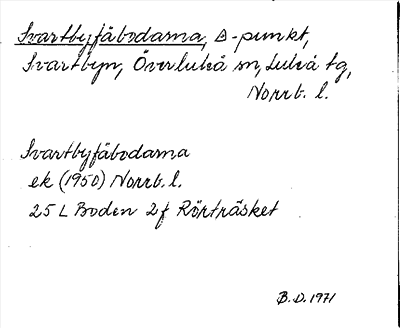 Svartbyfäbodarna, △-punkt,
Svartbyn, Överluleå sn, Luleå tg,
Norrb. l.
Svartbyfäbodarna
ek (1950) Norrb. l.
25 L Boden 2f Rörträsket
B. D. 1971